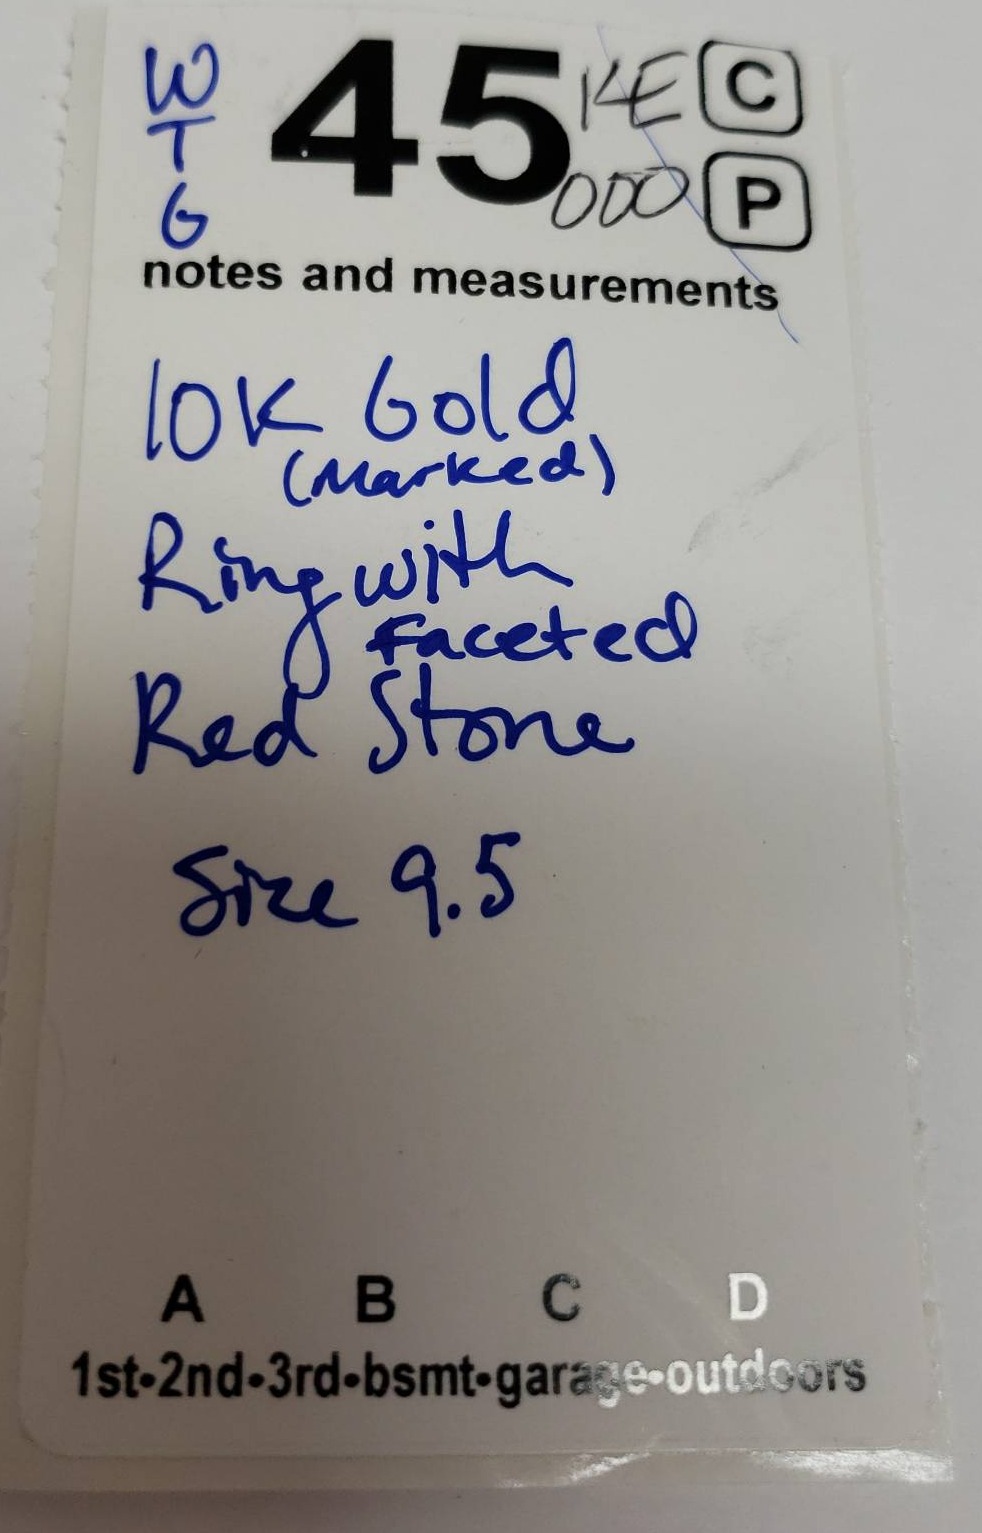 W
T
G
45
KE
C
000
P
notes and measurements
10K Gold
(Marked)
Ring with
Faceted
Red Stone
Size 9.5
A B C D
1st•2nd•3rd•bsmt•garage•outdoors